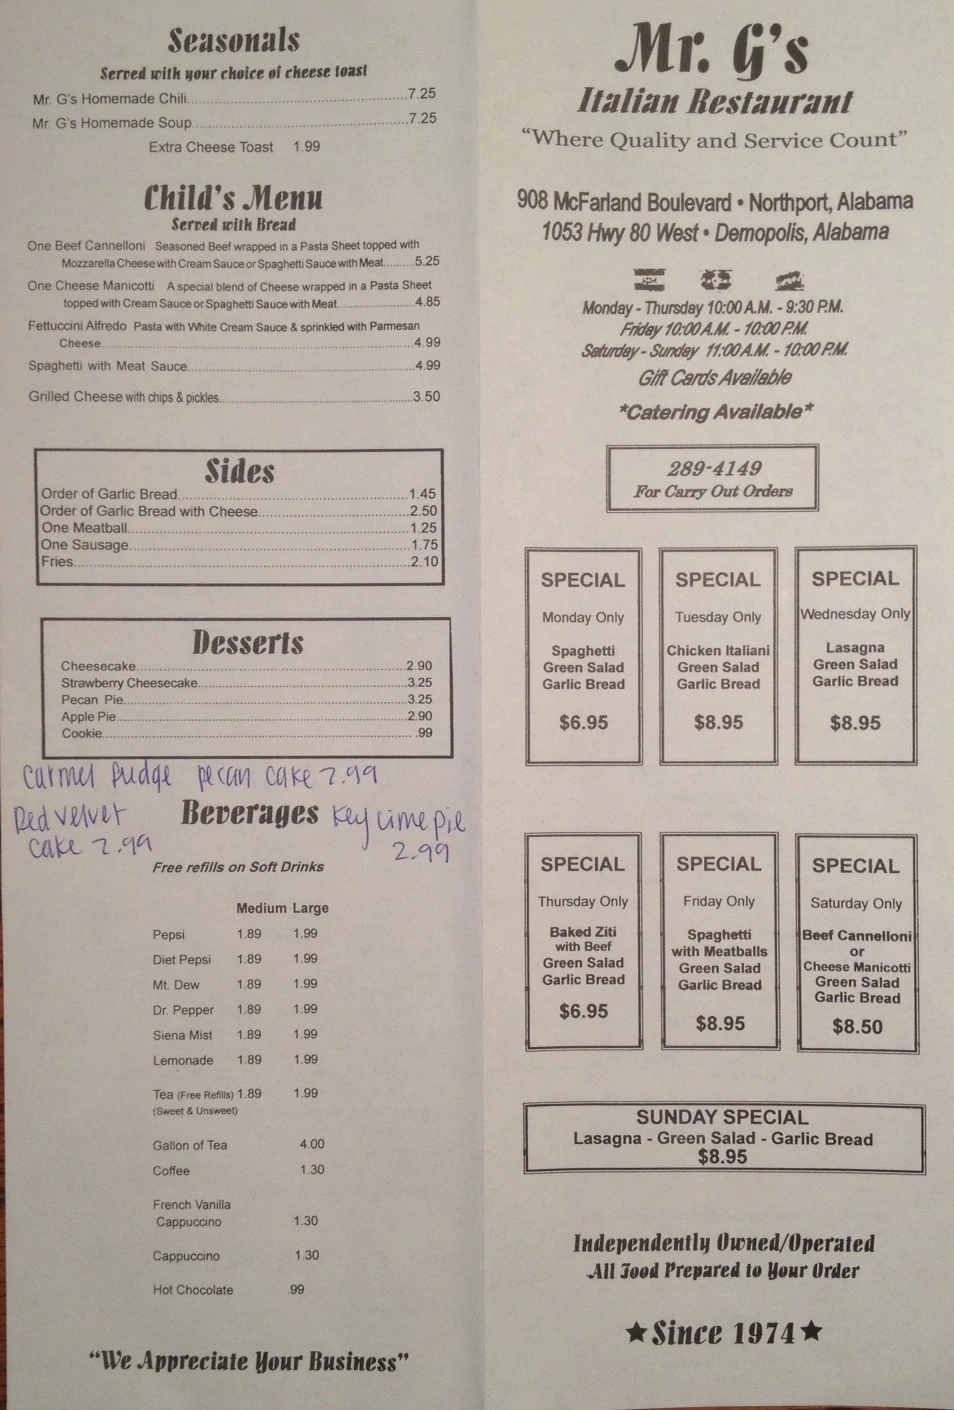 Seasonals
Served with your choice of cheese toast
Mr. G's Homemade Chili 7.25
Mr. G's Homemade Soup 7.25
Extra Cheese Toast 1.99
Child's Menu
Served with Bread
One Beef Cannelloni Seasoned Beef wrapped in a Pasta Sheet topped with
Mozzarella Cheese with Cream Sauce or Spaghetti Sauce with Meat 5.25
One Cheese Manicotti A special blend of Cheese wrapped in a Pasta Sheet
topped with Cream Sauce or Spaghetti Sauce with Meat 4.85
Fettuccini Alfredo Pasta with White Cream Sauce & sprinkled with Parmesan
Cheese 4.99
Spaghetti with Meat Sauce 4.99
Grilled Cheese with chips & pickles 3.50
Sides
Order of Garlic Bread 1.45
Order of Garlic Bread with Cheese 2.50
One Meatball 1.25
One Sausage 1.75
Fries 2.10
Desserts
Cheesecake 2.90
Strawberry Cheesecake 3.25
Pecan Pie 3.25
Apple Pie 2.90
Cookie .99
Carmel fudge pecan cake 2.99
Red Velvet
cake 2.99
Key Lime pie
2.99
Beverages
Free refills on Soft Drinks
Medium Large
Pepsi 1.89 1.99
Diet Pepsi 1.89 1.99
Mt. Dew 1.89 1.99
Dr. Pepper 1.89 1.99
Siena Mist 1.89 1.99
Lemonade 1.89 1.99
Tea (Free Refills) 1.89 1.99
(Sweet & Unsweet)
Gallon of Tea 4.00
Coffee 1.30
French Vanilla
Cappuccino 1.30
Cappuccino 1.30
Hot Chocolate .99
"We Appreciate Your Business"
Mr. G's
Italian Restaurant
"Where Quality and Service Count"
908 McFarland Boulevard • Northport, Alabama
1053 Hwy 80 West • Demopolis, Alabama
Monday - Thursday 10:00 A.M. - 9:30 P.M.
Friday 10:00 A.M. - 10:00 P.M.
Saturday - Sunday 11:00 A.M. - 10:00 P.M.
Gift Cards Available
*Catering Available*
289-4149
For Carry Out Orders
SPECIAL
Monday Only
Spaghetti
Green Salad
Garlic Bread
$6.95
SPECIAL
Tuesday Only
Chicken Italiani
Green Salad
Garlic Bread
$8.95
SPECIAL
Wednesday Only
Lasagna
Green Salad
Garlic Bread
$8.95
SPECIAL
Thursday Only
Baked Ziti
with Beef
Green Salad
Garlic Bread
$6.95
SPECIAL
Friday Only
Spaghetti
with Meatballs
Green Salad
Garlic Bread
$8.95
SPECIAL
Saturday Only
Beef Cannelloni
or
Cheese Manicotti
Green Salad
Garlic Bread
$8.50
SUNDAY SPECIAL
Lasagna - Green Salad - Garlic Bread
$8.95
Independently Owned/Operated
All Food Prepared to Your Order
★Since 1974★